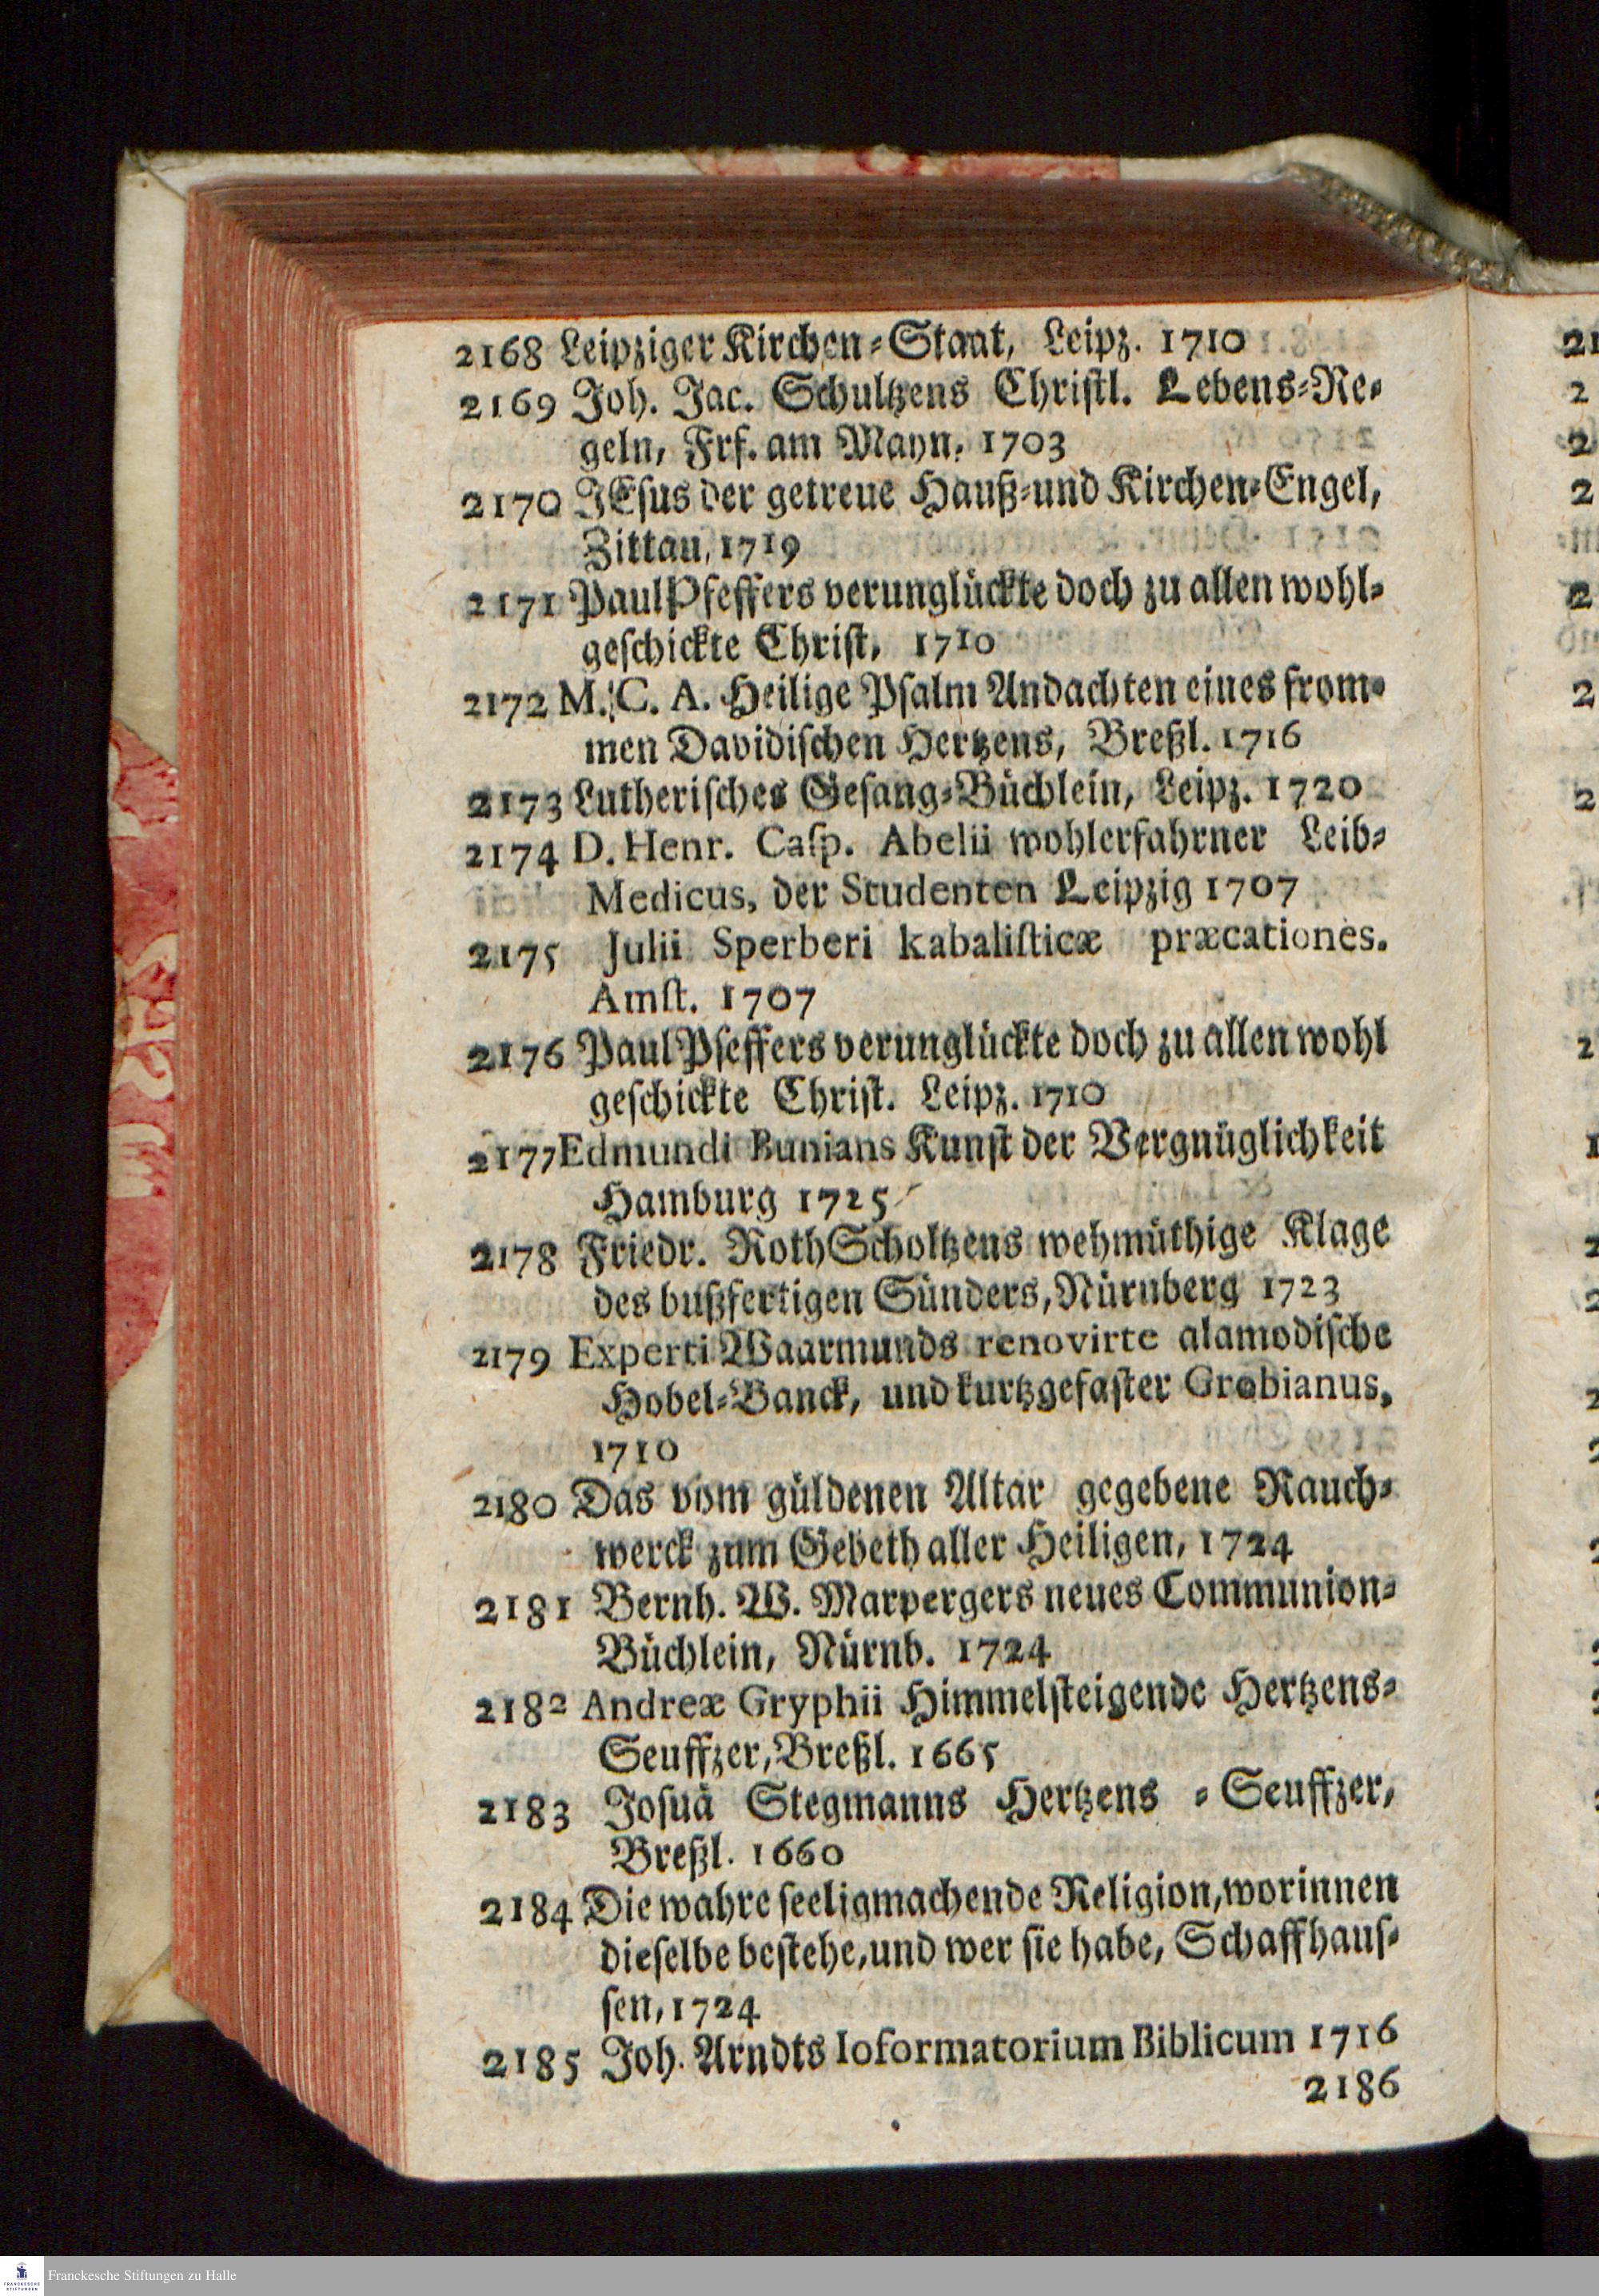 2168 Leipziger Kirchen-Staat, Leipz. 1710
2169 Joh. Jac. Schultzens Christl. Lebens-Re-
geln, Frf. am Mayn, 1703
2170 JEsus der getreue Hauß-und Kirchen-Engel,
Zittau, 1719
2171 Paul Pfeffers verunglückte doch zu allen wohl-
geschickte Christ, 1710
2172 M. C. A. Heilige Psalm Andachten eines from-
men Davidischen Hertzens, Breßl. 1716
2173 Lutherisches Gesang-Büchlein, Leipz. 1720
2174 D. Henr. Casp. Abelii wohlerfahrner Leib-
Medicus, der Studenten Leipzig 1707
2175 Julii Sperberi kabalisticæ præcationes.
Amst. 1707
2176 Paul Pfeffers verunglückte doch zu allen wohl
geschickte Christ. Leipz. 1710
2177 Edmundi Bunians Kunst der Vergnüglichkeit
Hamburg 1725
2178 Friedr. RothScholtzens wehmüthige Klage
des bußfertigen Sünders, Nürnberg 1723
2179 Experti Waarmunds renovirte alamodische
Hobel-Banck, und kurtzgefaster Grobianus,
1710
2180 Das vom güldenen Altar gegebene Rauch-
werck zum Gebeth aller Heiligen, 1724
2181 Bernh. W. Marpergers neues Communion-
Büchlein, Nürnb. 1724
2182 Andreæ Gryphii Himmelsteigende Hertzens-
Seuffzer, Breßl. 1665
2183 Josuä Stegmanns Hertzens - Seuffzer,
Breßl. 1660
2184 Die wahre seeligmachende Religion, worinnen
dieselbe bestehe, und wer sie habe, Schaffhaus-
sen, 1724
2185 Joh. Arndts Ioformatorium Biblicum 1716
2186
Franckesche Stiftungen zu Halle